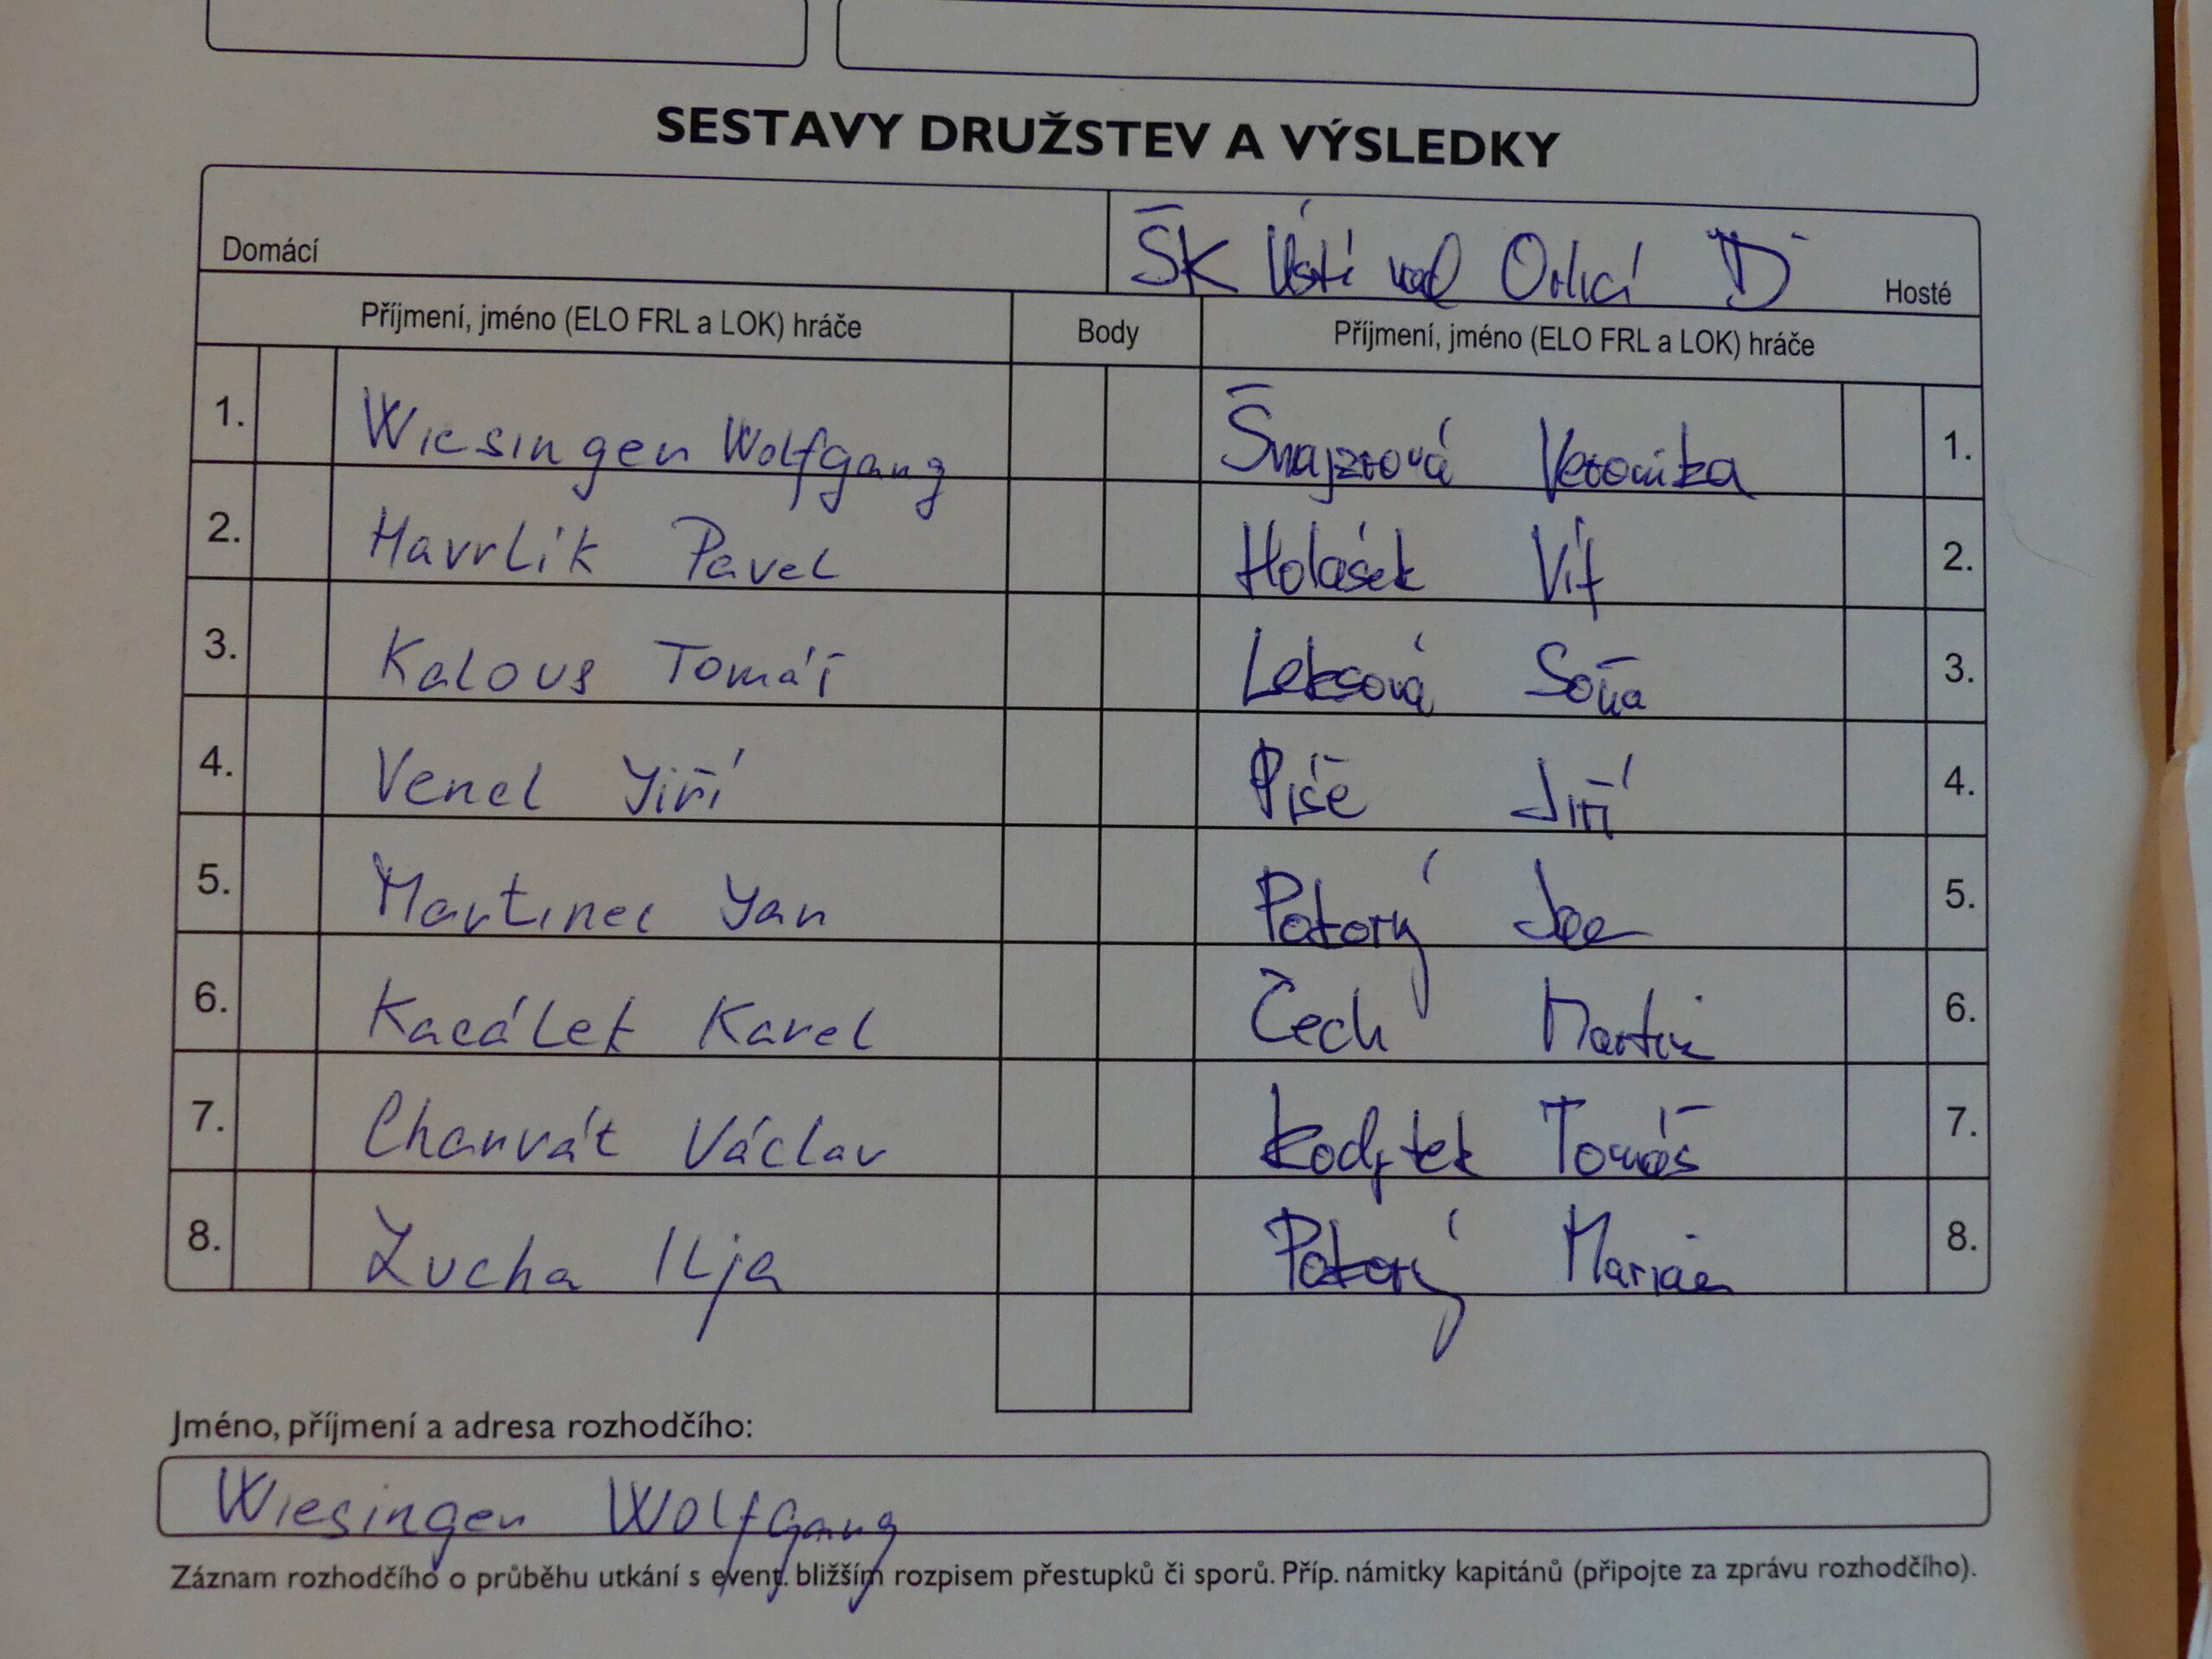 SESTAVY DRUŽSTEV A VÝSLEDKY
Domácí ŠK Ústí nad Orlicí D Hosté
Příjmení, jméno (ELO FRL a LOK) hráče Body Příjmení, jméno (ELO FRL a LOK) hráče
1. Wiesinger Wolfgang Šnajzrová Veronika 1.
2. Havrlik Pavel Holásek Vít 2.
3. Kalous Tomáš Leksová Soňa 3.
4. Vencl Jiří Píše Jiří 4.
5. Martinec Jan Potorý Jan 5.
6. Kacálek Karel Čech Martin 6.
7. Charvát Václav Kodytek Tomáš 7.
8. Zucha Ilja Potorý Marian 8.
Jméno, příjmení a adresa rozhodčího:
Wiesinger Wolfgang
Záznam rozhodčího o průběhu utkání s event. bližším rozpisem přestupků či sporů. Příp. námitky kapitánů (připojte za zprávu rozhodčího).